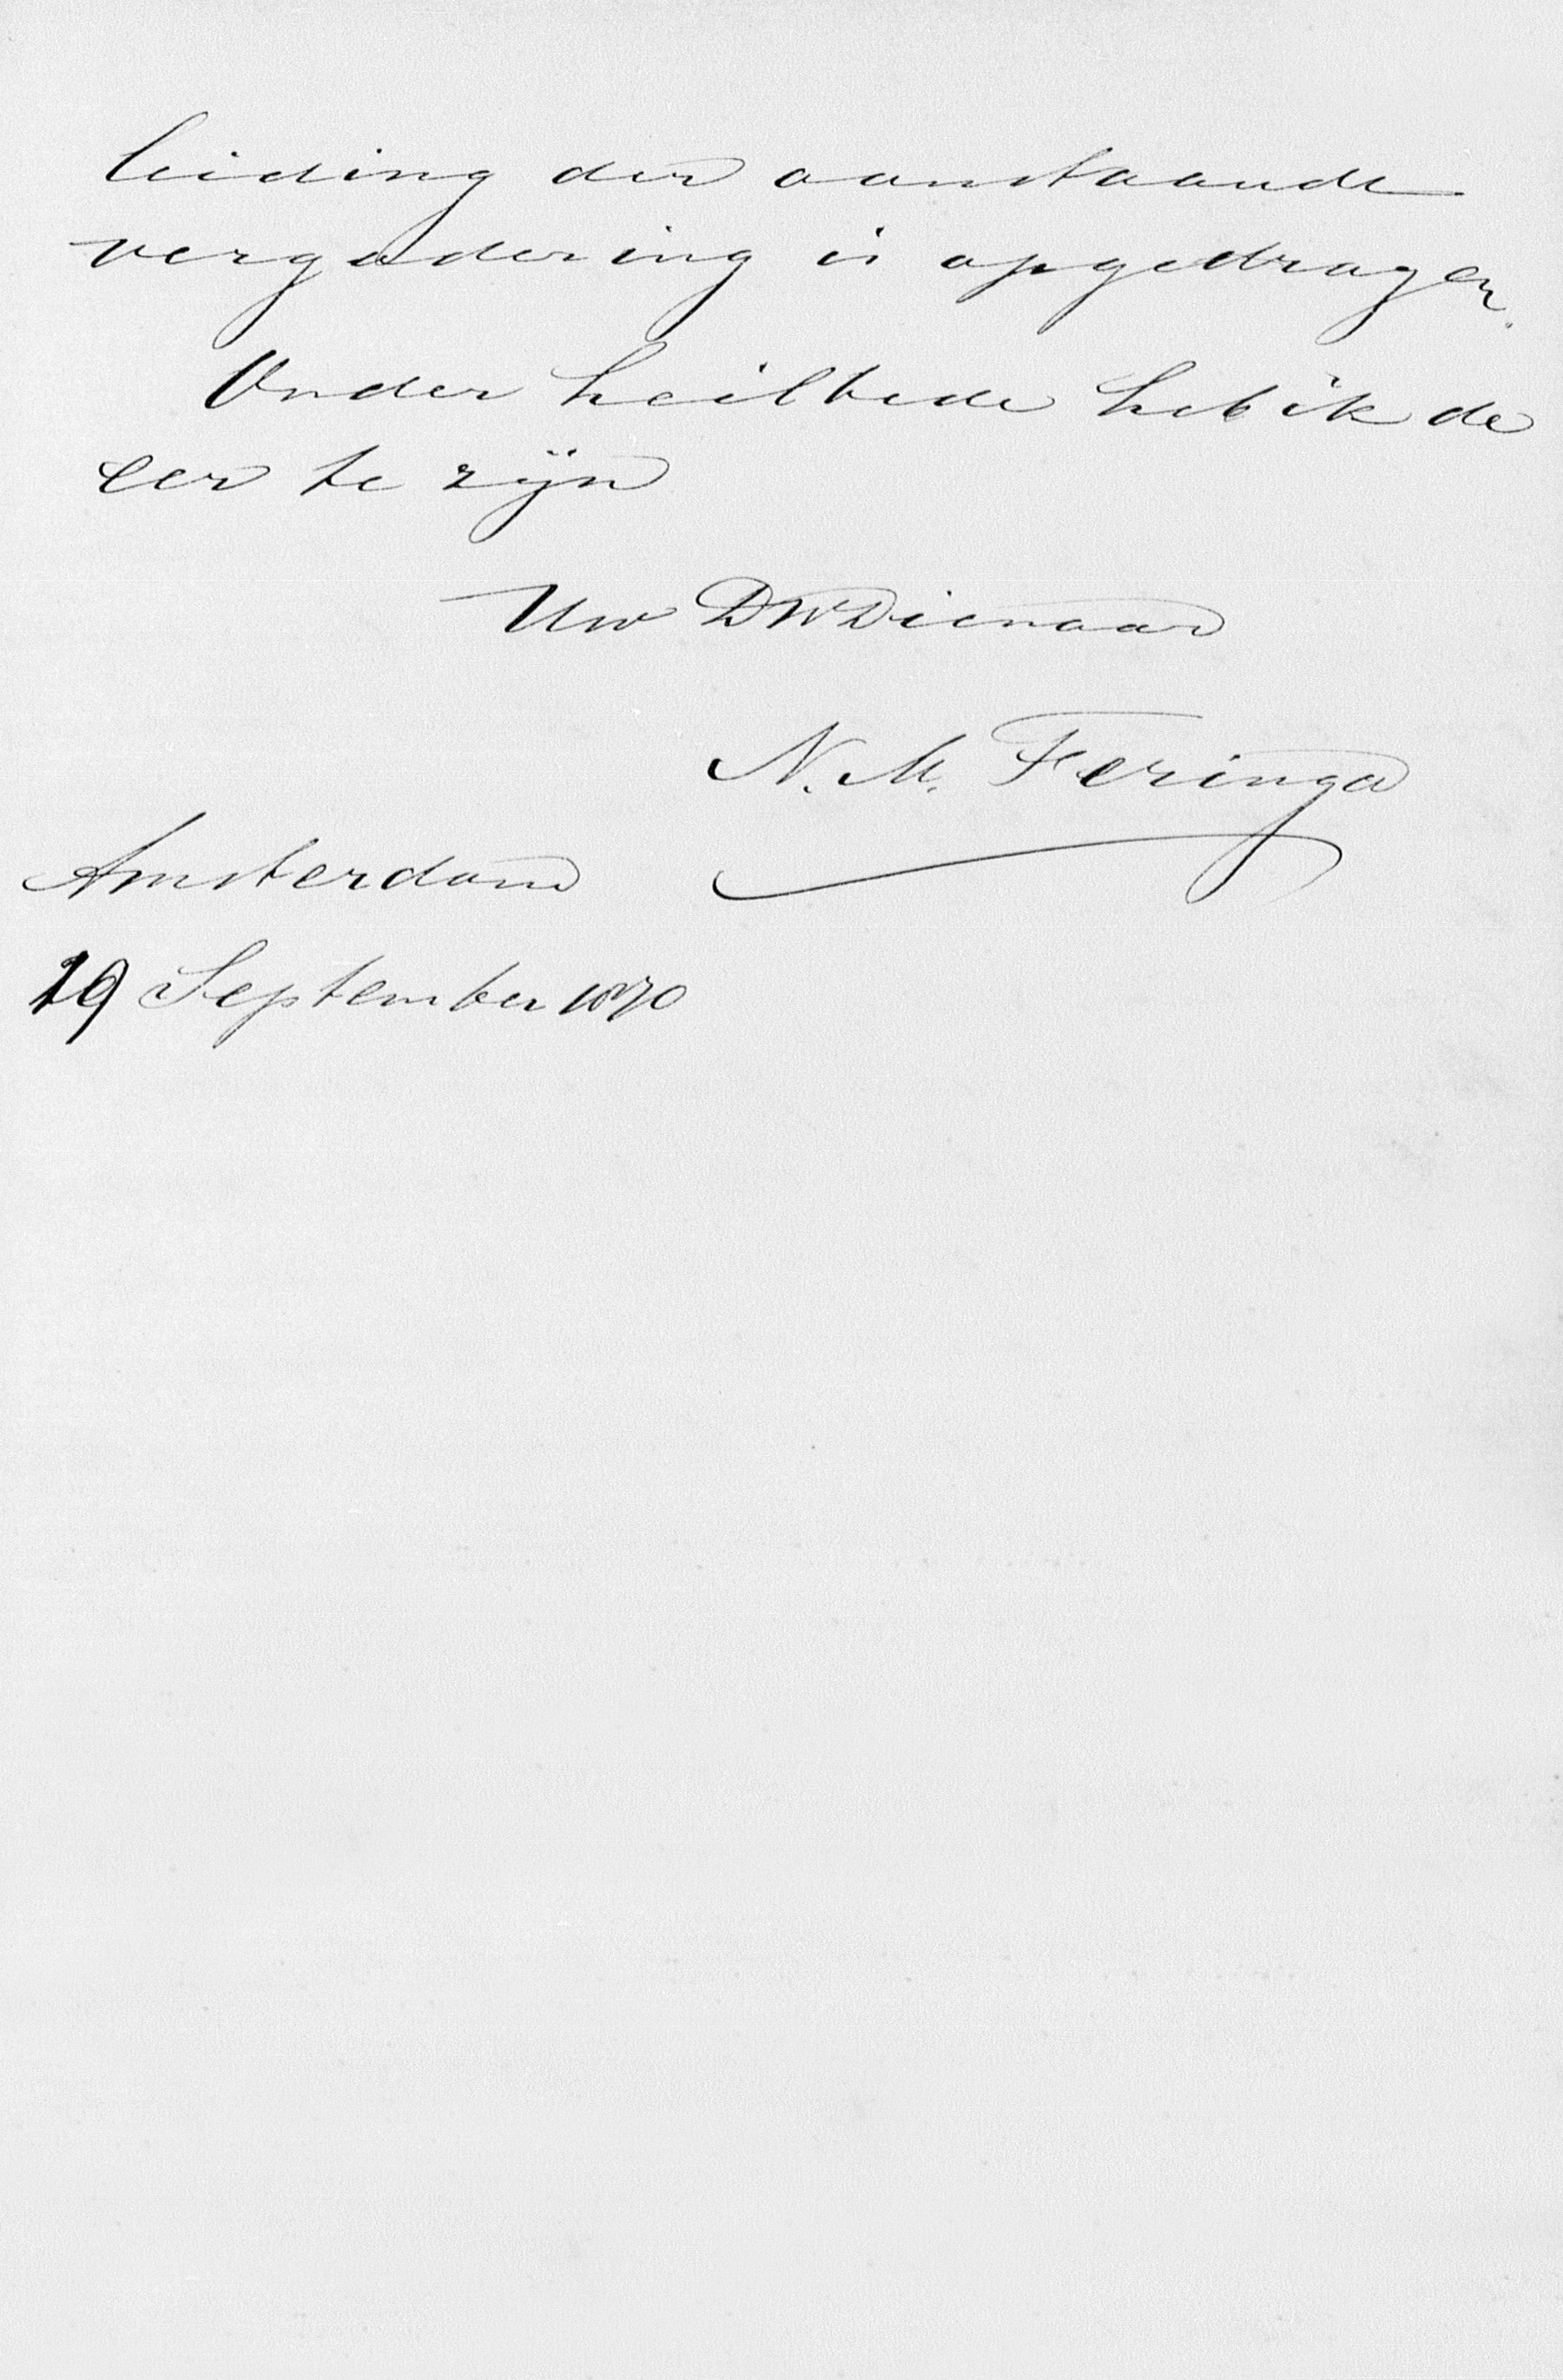 leiding der aanstaande
vergadering is opgedragen.
Onder heilbede heb ik de
eer te zijn
Uw DWDienaar
N. M. Feringa
Amsterdam
19 September 1870